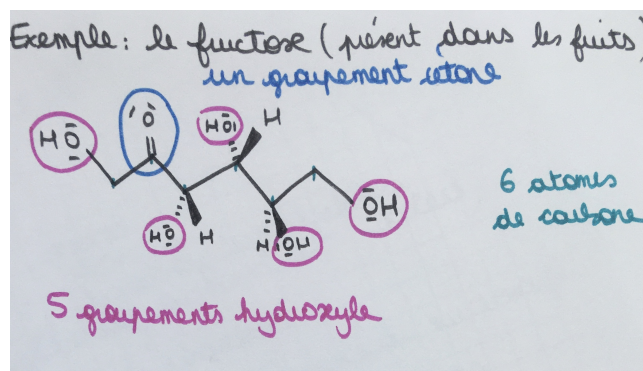 Exemple : le fructose (présent dans les fruits)
un groupement cétone
HO
O
HO
H
HO
H
H
OH
OH
6 atomes
de carbone
5 groupements hydroxyle